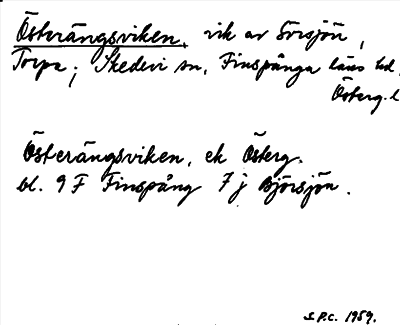 Österängsviken, vik av Sörsjön,
Torpa; Skedevi sn, Finspånga läns hd,
Österg. l
Österängsviken, ek Österg.
bl. 9 F Finspång 7 j Björsjön.
S.P.C. 1959.